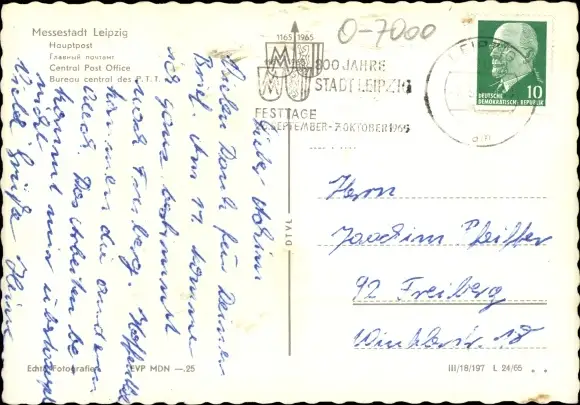 Messestadt Leipzig
Hauptpost
Главный почтамт
Central Post Office
Bureau central des P.T.T.
1165 1965
800 JAHRE
STADT LEIPZIG
FESTTAGE
SEPTEMBER - 7. OKTOBER 1965
O-7000
DEUTSCHE
DEMOKRATISCHE REPUBLIK
10
Lieber Achim
Vielen Dank für Deinen
Brief. Am 11. komme
ich ganz bestimmt
nach Freiberg. Hoffentlich
kommen die anderen
auch. Das Arbeiten be-
kommt mir überhaupt
nicht.
Viele Grüße
Herrn
Joachim Pfeiffer
92 Freiberg
18
Echte Fotografie
EVP MDN —.25
III/18/197 L 24/65